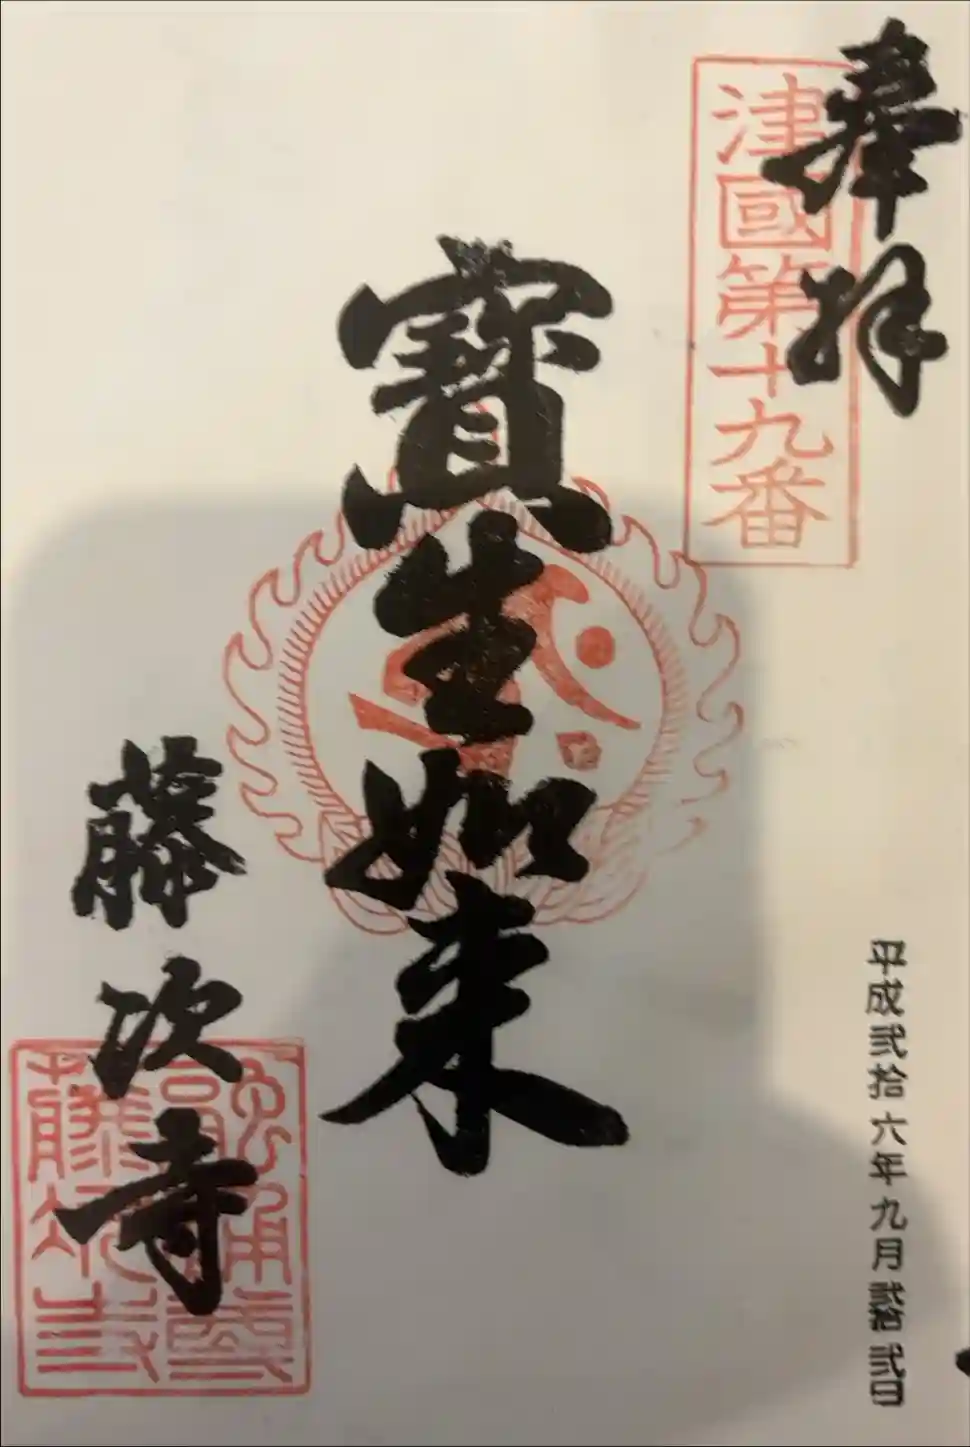 奉拝
津國第十九番
平成弐拾六年九月弐拾弐日
寳生如来
藤次寺